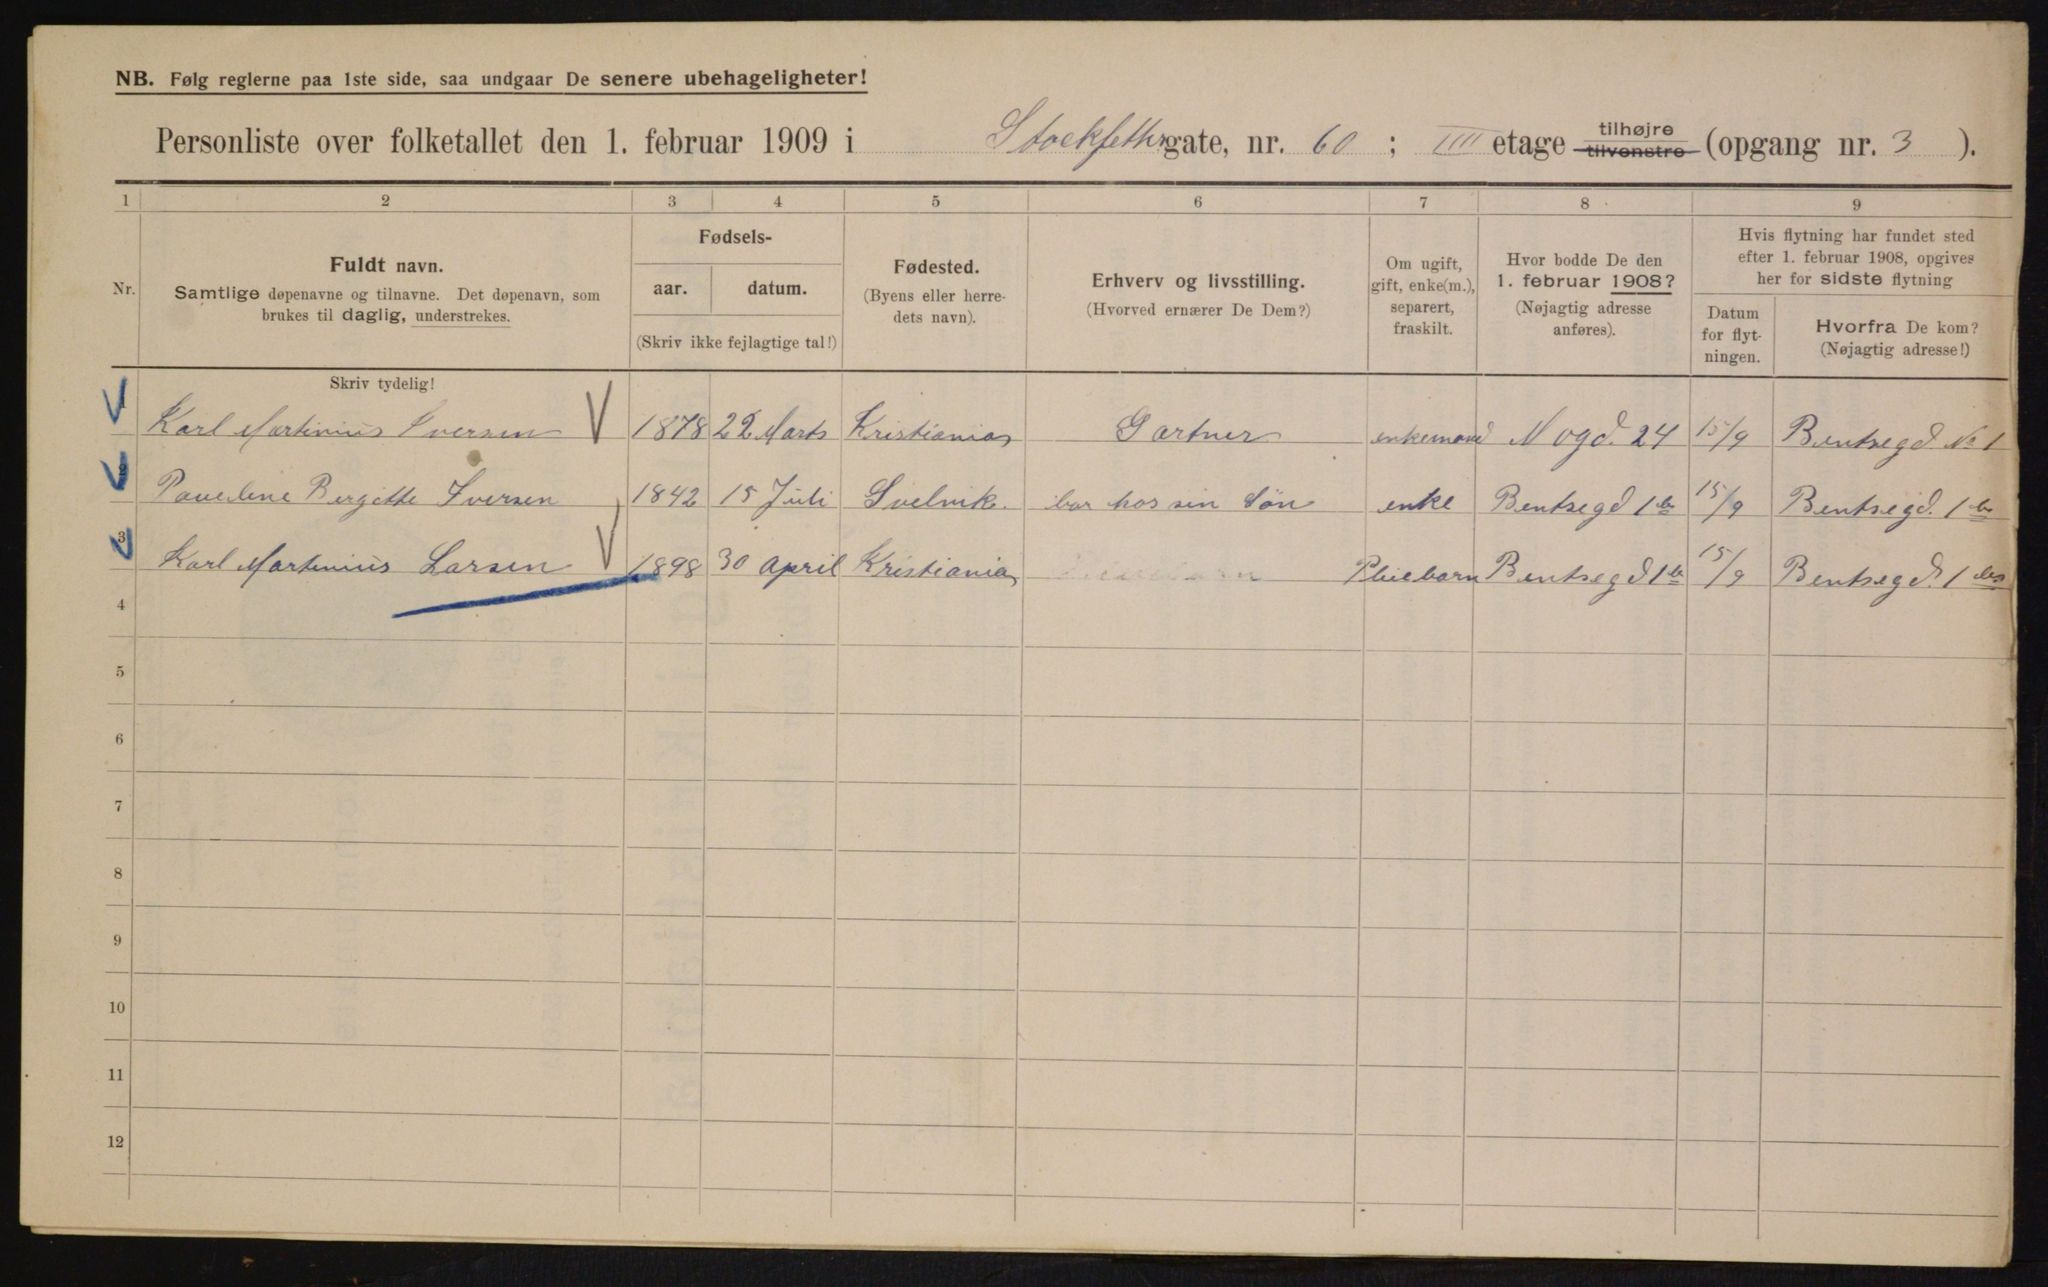 NB. Følg reglerne paa 1ste side, saa undgaar De senere ubehageligheter!
Personliste over folketallet den 1. februar 1909 i Stockflethsgate, nr. 60; IIII etage tilhøjre tilvenstre (opgang nr. 3).
1 2 3 4 5 6 7 8 9
Nr.
Fuldt navn.
Samtlige døpenavne og tilnavne. Det døpenavn, som
brukes til daglig, understrekes.
Skriv tydelig!
Fødsels-
aar. datum.
(Skriv ikke fejlagtige tal!)
Fødested.
(Byens eller herre-
dets navn).
Erhverv og livsstilling.
(Hvorved ernærer De Dem?)
Om ugift,
gift, enke(m.),
separert,
fraskilt.
Hvor bodde De den
1. februar 1908?
(Nøjagtig adresse
anføres).
Hvis flytning har fundet sted
efter 1. februar 1908, opgives
her for sidste flytning
Datum
for flyt-
ningen.
Hvorfra De kom?
(Nøjagtig adresse!)
1 Karl Martinius Iversen 1878 22 Marts Kristiania Gartner enkemand Nogd. 24 15/9 Bentsegd. No 1
2 Pauline Bergitte Iversen 1842 15 Juli Svelvik. bor hos sin Søn enke Bentsegd 1 15/9 Bentsegd. 1
3 Karl Martinius Larsen 1898 30 April Kristiania Pleiebarn Bentsegd 1 15/9 Bentsegd. 1
4
5
6
7
8
9
10
11
12